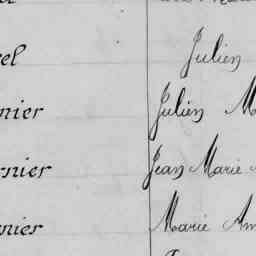 el Julien
nier Julien M
rnier Jean Marie
nier Marie Am